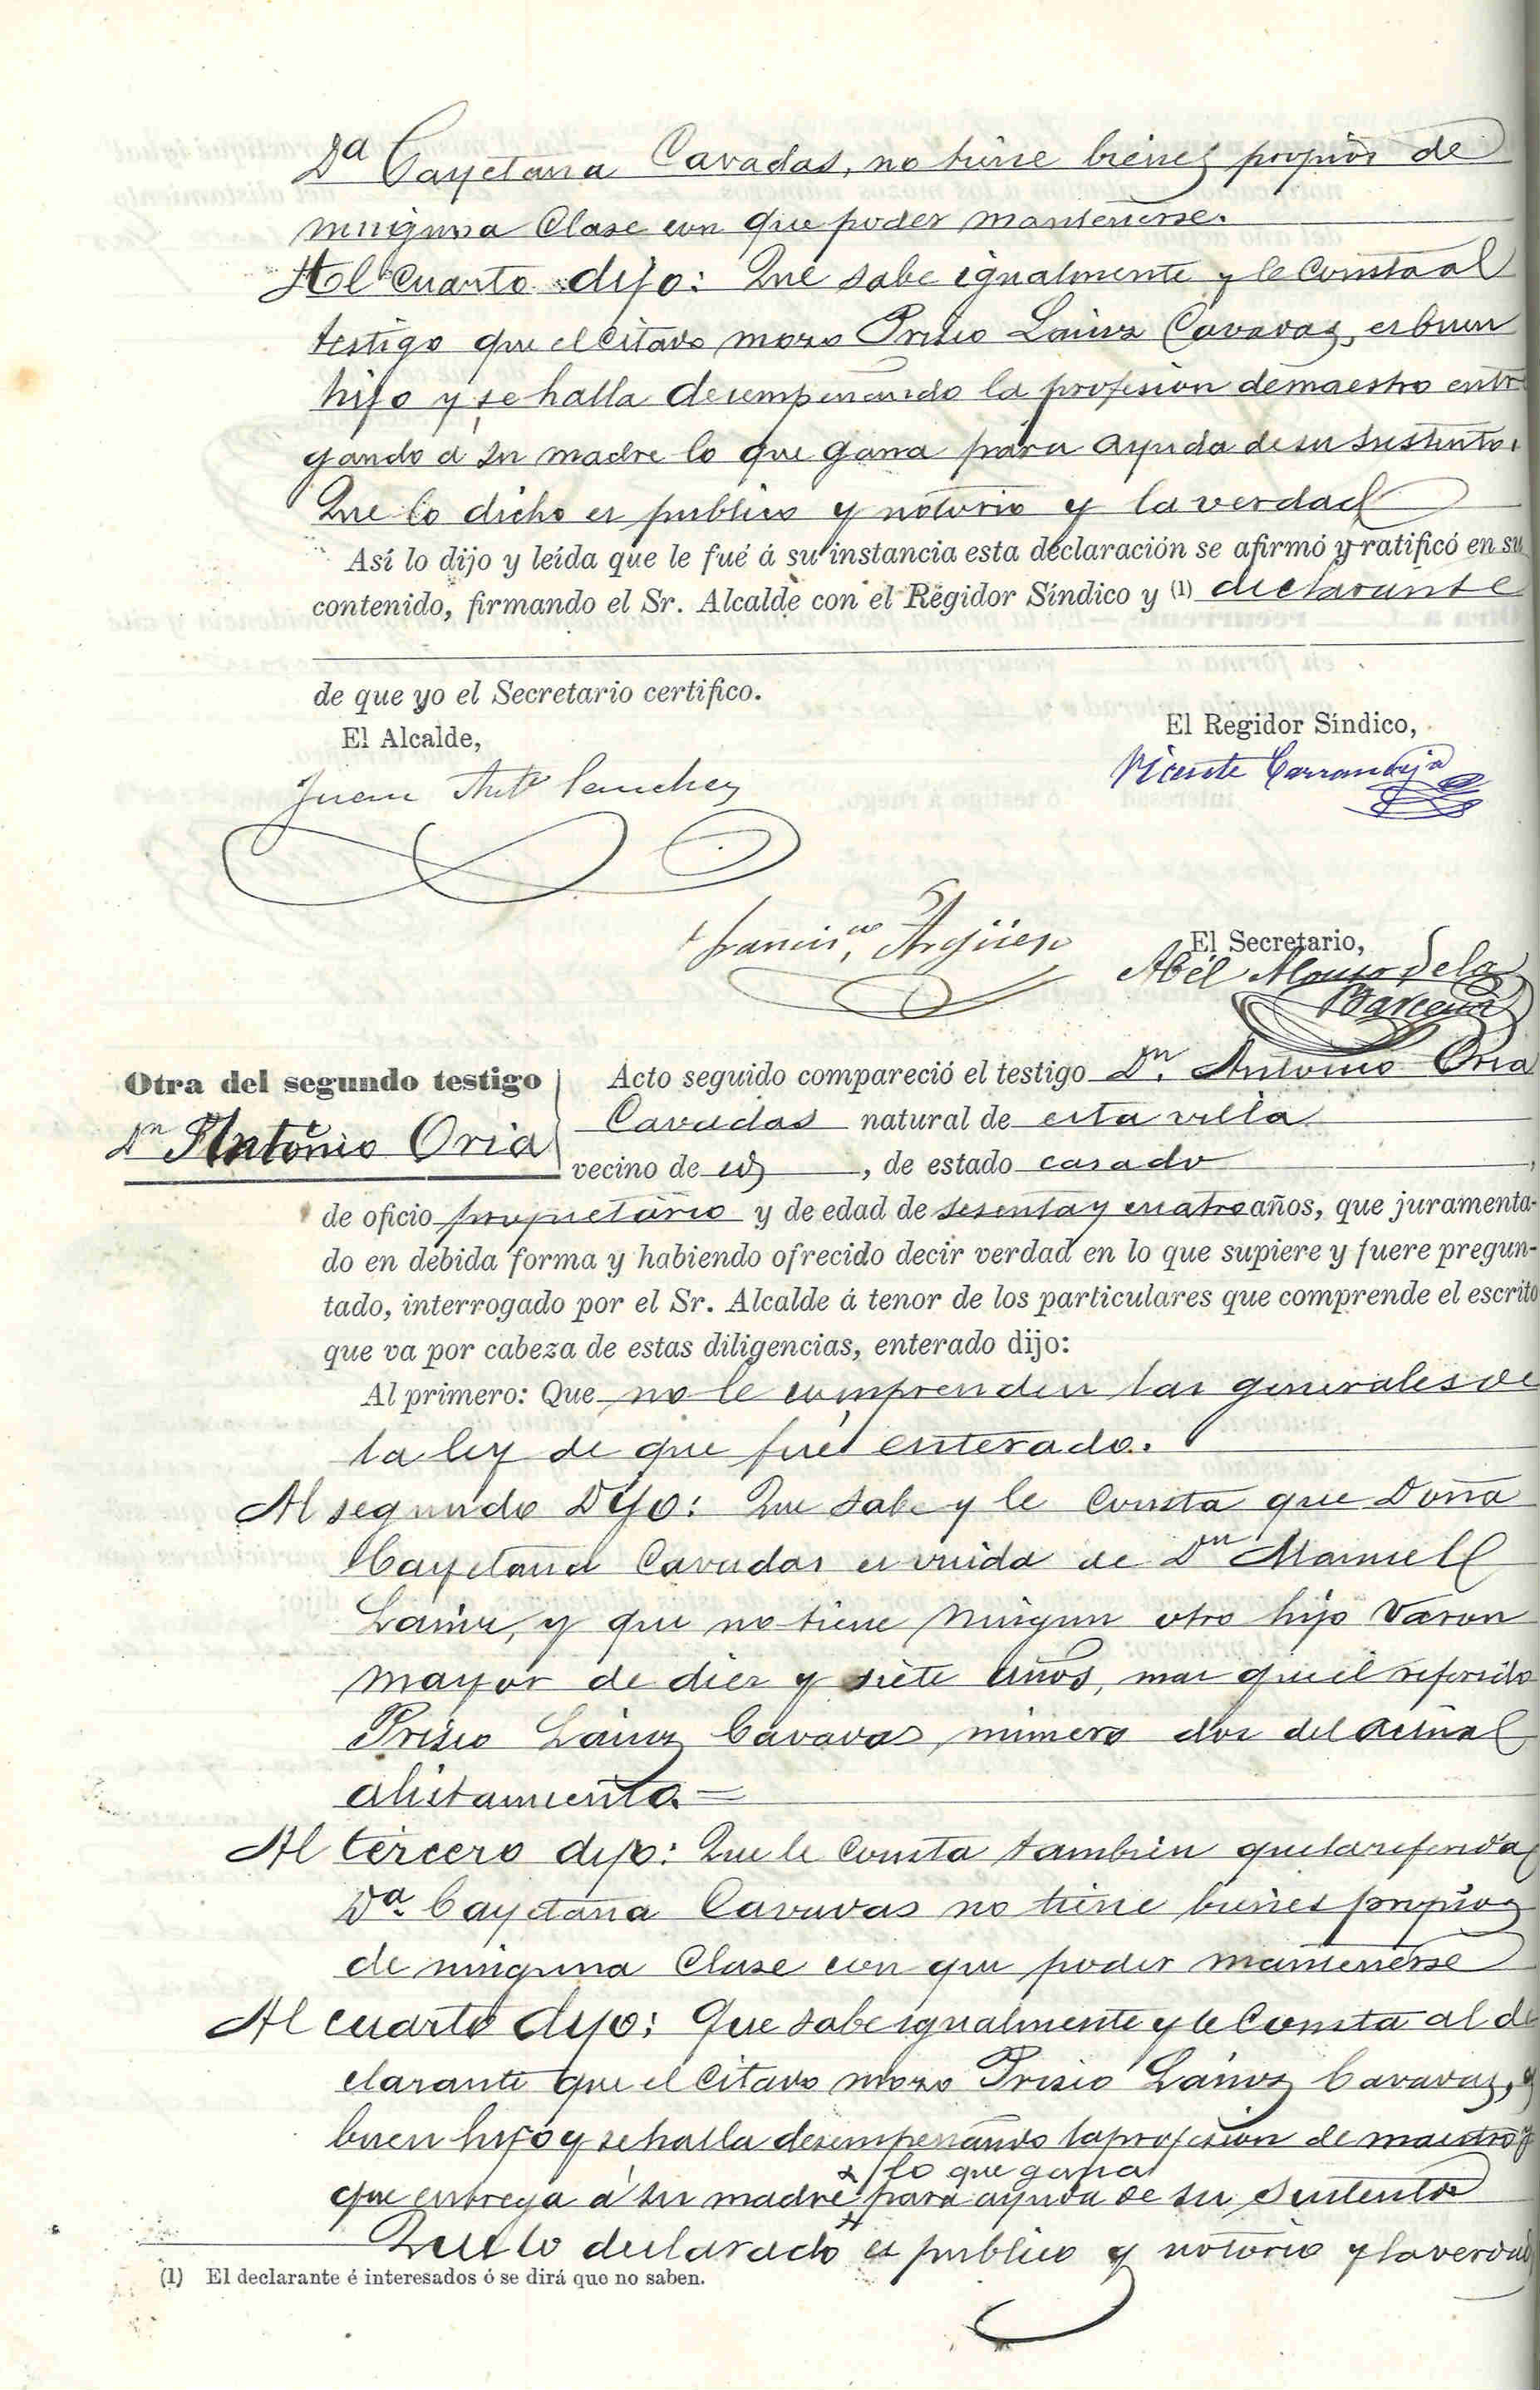 Dª Cayetana Cavadas, no tiene bienes propios de
ninguna Clase con que poder mantenerse.
Al cuarto dijo: Que sabe igualmente y le Consta al
testigo que el citado mozo Prisio Láinz Cavadas, es buen
hijo y se halla desempeñando la profesion de maestro entre
gando á su madre lo que gana para ayuda de su sustento.
Que lo dicho es publico y notorio y la verdad
Así lo dijo y leída que le fué á su instancia esta declaración se afirmó y ratificó en su
contenido, firmando el Sr. Alcalde con el Regidor Síndico y (1) declarante
de que yo el Secretario certifico.
El Alcalde,
El Regidor Síndico,
Juan Antº Sanchez
Vicente Carrandeja
Francisco Argüeso
El Secretario,
Abél Alonso de la
Barcena
Otra del segundo testigo
Dn Antonio Oria
Acto seguido compareció el testigo Dn. Antonio Oria
Cavadas natural de esta villa
vecino de id, de estado casado,
de oficio propietario y de edad de sesenta y cuatro años, que juramenta-
do en debida forma y habiendo ofrecido decir verdad en lo que supiere y fuere pregun-
tado, interrogado por el Sr. Alcalde á tenor de los particulares que comprende el escrito
que va por cabeza de estas diligencias, enterado dijo:
Al primero: Que no le comprenden las generales de
la ley de que fué enterado.
Al segundo Dijo: Que sabe y le Consta que Doña
Cayetana Cavadas es viuda de Dn Manuel
Láinz, y que no tiene ningun otro hijo Varon
mayor de diez y siete años, mas que el referido
Prisio Láinz Cavadas, número dos del actual
alistamiento.=
Al tercero dijo: Que le Consta tambien que la referida
Dª. Cayetana Cavadas no tiene bienes propios
de ninguna Clase con que poder mantenerse
Al cuarto dijo: Que sabe igualmente y le Consta al de
clarante que el citado mozo Prisio Láinz Cavadas, es
buen hijo y se halla desempeñando la profesion de maestro y
lo que gana
que entrega á su madre para ayuda de su sustento
Que lo declarado es publico y notorio y la verdad
(1) El declarante é interesados ó se dirá que no saben.